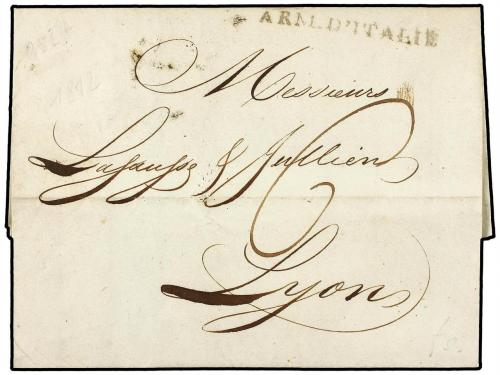 ARM. D'ITALIE
Messieurs
Lafausse & Jullien
6
Lyon